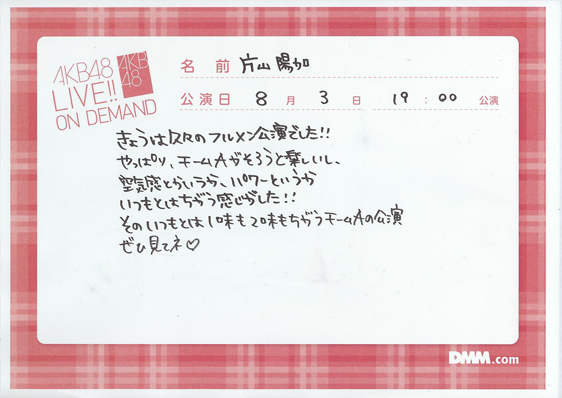 AKB48
LIVE!!
ON DEMAND
AKB
48
名前 片山 陽加
公演日 8月3日 19:00 公演
きょうは久々のフルメン公演でした!!
やっぱり、チームAがそろうと楽しいし、
空気感とかいうか、パワーというか
いつもとはちがう感じがした!!
そのいつもとは1味も2味もちがうチームAの公演
ぜひ見てネ♡
DMM.com